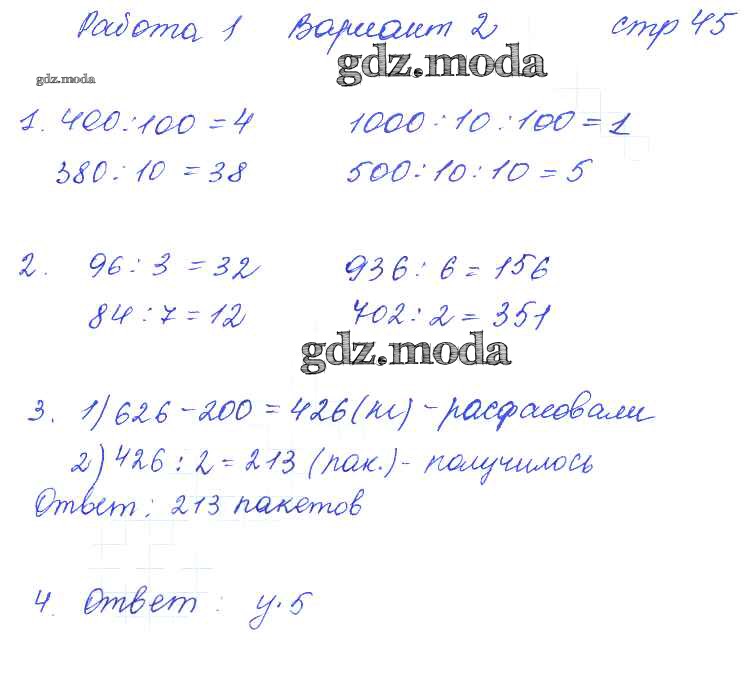 Работа 1 Вариант 2 стр 45
gdz.moda
gdz.moda
1. 400 : 100 = 4 1000 : 10 : 100 = 1
380 : 10 = 38 500 : 10 : 10 = 5
2. 96 : 3 = 32 936 : 6 = 156
84 : 7 = 12 702 : 2 = 351
gdz.moda
3. 1) 626 - 200 = 426 (кг) - расфасовали
2) 426 : 2 = 213 (пак.) - получилось
Ответ: 213 пакетов
4. Ответ: y·5